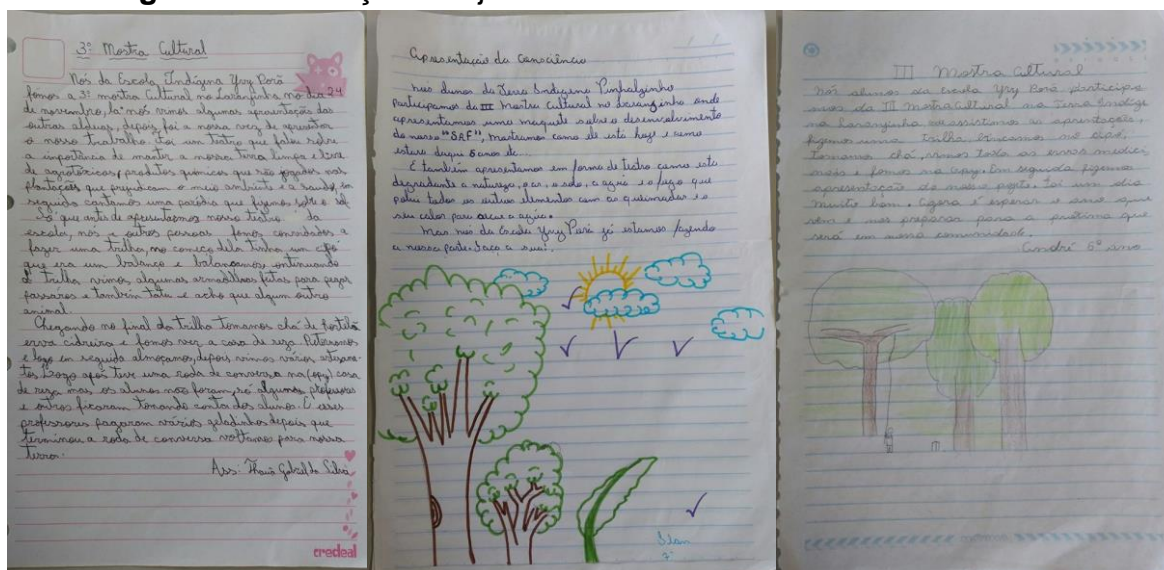 3ª Mostra Cultural
Nós da Escola Indígena Yvy Porã
fomos a 3ª mostra Cultural no Laranjinha no dia 24
de novembro, lá nós vimos algumas apresentações das
outras aldeias, depois foi a nossa vez de apresentar
o nosso trabalho foi um teatro que falou sobre
a importância de manter a nossa terra limpa e livre
de agrotóxicos, produtos químicos que são jogados nas
plantações que prejudicam o meio ambiente e a saúde, em
seguida cantamos uma paródia que fizemos sobre o
Só que antes de apresentarmos nosso teatro da
escola, nós e outras pessoas fomos convidados a
fazer uma trilha, no começo dela tinha um cipó
que era um balanço e balançamos, continuando
a trilha vimos algumas armadilhas feitas para pegar
passaros e também tatu e acho que algum outro
animal.
Chegando no final da trilha tomamos chá de hortelã
erva cidreira e fomos ver a casa de reza. Retornamos
e logo em seguida almoçamos, depois vimos vários
Logo após teve uma roda de conversa na (opy) casa
de reza, mas os alunos não foram, só alguns professores
e outros ficaram tomando conta dos alunos. E esses
professores pagaram vários geladinhos depois que
terminou a roda de conversa voltamos para nossa
terra.
Ass: Gabrielda Silva
credeal
Apresentação da Consciência
Nós alunos da Terra Indígena Pinhalzinho
Participamos da III Mostra Cultural no Laranjinha onde
apresentamos uma maquete sobre o desenvolvimento
do nosso "SAF", mostramos como ele está hoje e como
estará daqui 5 anos etc.
E também apresentamos em forma de teatro como está
degradante a natureza, o ar, o solo, a água e o fogo que
polui todos os outros elementos com as queimadas e o
seu calor para a água.
Mas nós da Escola Yvy Porã já estamos fazendo
a nossa parte. Faça a sua!
7º
III Mostra Cultural
Nós alunos da escola Yvy Porã participa
mos da III Mostra Cultural na Terra Indige
na Laranjinha assistimos as apresentações,
fizemos uma trilha, brincamos no cipó,
tomamos chá, vimos toda as ervas medici
nais e fomos na Opy. Em seguida fizemos
apresentação da nossa parte. Foi um dia
muito bom. Agora é esperar o ano que
vem e nos preparar para a próxima que
será em nossa comunidade.
André 6º ano